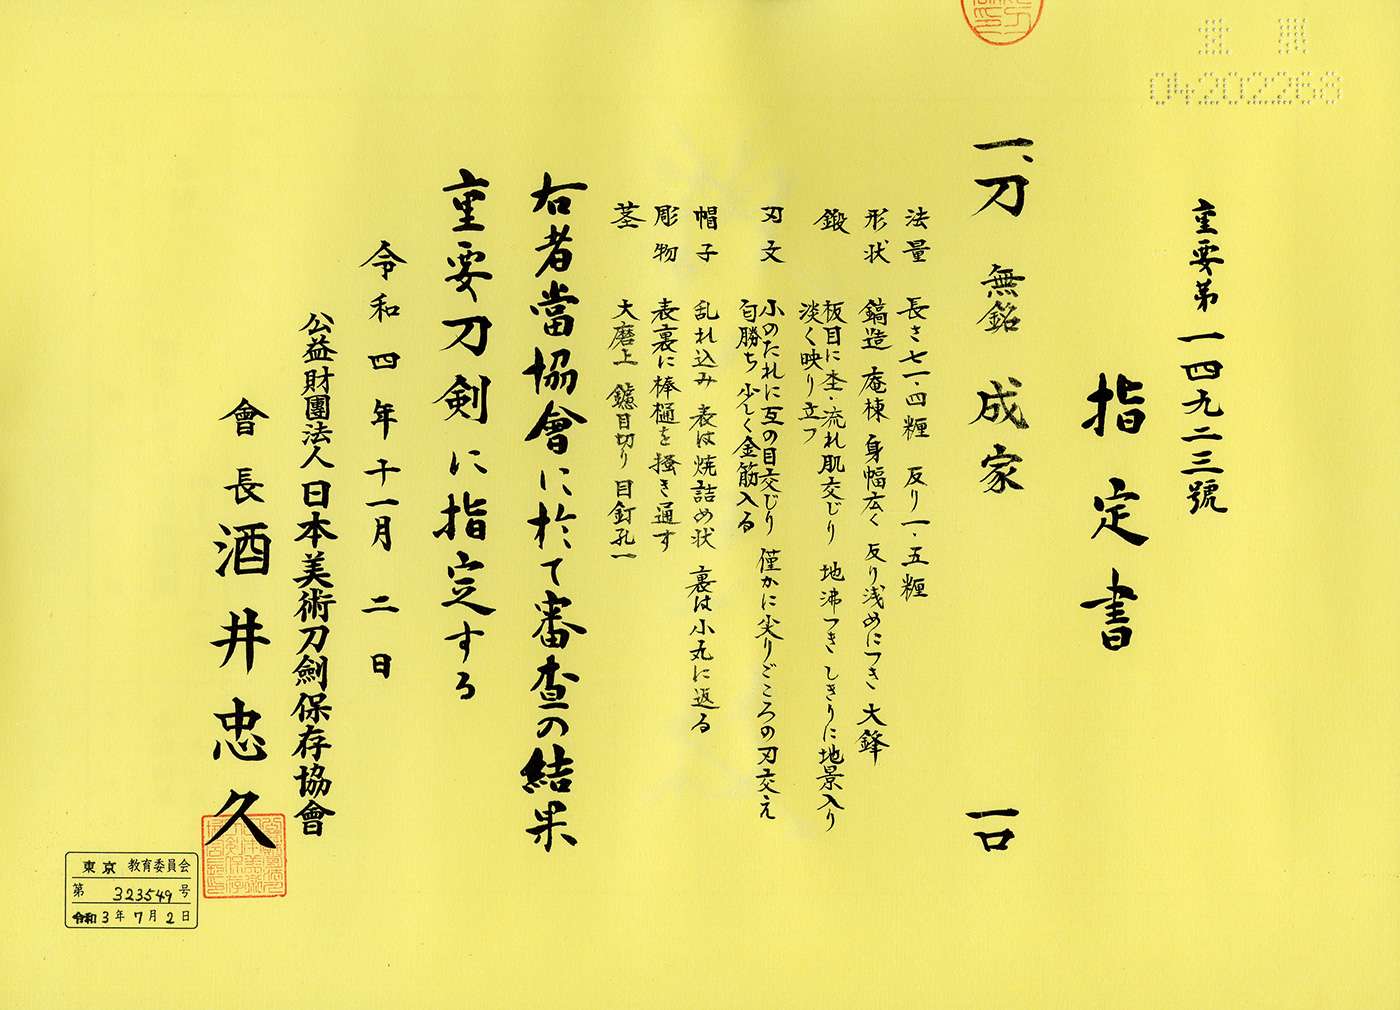 重要
04202263
重要第一四九二三號
指定書
一、刀 無銘 成家 一口
法量 長さ七一・四糎 反り一・五糎
形状 鎬造 庵棟 身幅広く 反り浅めにつき 大鋒
鍛 板目に杢・流れ肌交じり 地沸つき しきりに地景入り
淡く映り立つ
刃文 小のたれに互の目交じり 僅かに尖りごころの刃交え
匂勝ち 少しく金筋入る
帽子 乱れ込み 表は焼詰め状 裏は小丸に返る
彫物 表裏に棒樋を掻き通す
茎 大磨上 鑢目切り 目釘孔一
右者當協會に於て審査の結果
重要刀剣に指定する
令和四年十一月二日
公益財團法人日本美術刀劍保存協會
會長 酒井忠久
東京 教育委員会
第 323549 号
令和3年7月2日